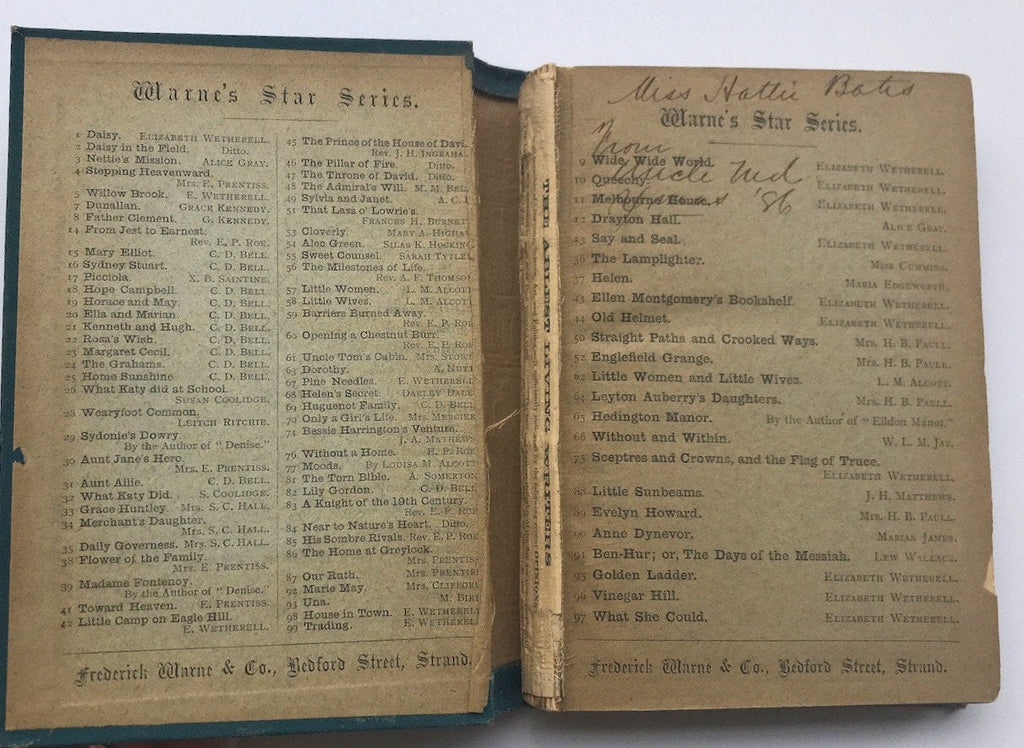 Warne's Star Series.
1 Daisy. ELIZABETH WETHERELL.
2 Daisy in the Field. Ditto.
3 Nettie's Mission. ALICE GRAY.
4 Stepping Heavenward.
Mrs. E. PRENTISS.
5 Willow Brook. E. WETHERELL.
7 Dunallan. GRACE KENNEDY.
8 Father Clement. G. KENNEDY.
14 From Jest to Earnest.
Rev. E. P. ROE.
15 Mary Elliot. C. D. BELL.
16 Sydney Stuart. C. D. BELL.
17 Picciola. X. B. SAINTINE.
18 Hope Campbell. C. D. BELL.
19 Horace and May. C. D. BELL.
20 Ella and Marian. C. D. BELL.
21 Kenneth and Hugh. C. D. BELL.
22 Rosa's Wish. C. D. BELL.
23 Margaret Cecil. C. D. BELL.
24 The Grahams. C. D. BELL.
25 Home Sunshine C. D. BELL.
26 What Katy did at School.
SUSAN COOLIDGE.
28 Wearyfoot Common.
LEITCH RITCHIE.
29 Sydonie's Dowry.
By the Author of "Denise."
30 Aunt Jane's Hero.
Mrs. E. PRENTISS.
31 Aunt Ailie. C. D. BELL.
32 What Katy Did. S. COOLIDGE.
33 Grace Huntley. Mrs. S. C. HALL.
34 Merchant's Daughter.
Mrs. S. C. HALL.
35 Daily Governess. Mrs. S. C. HALL.
38 Flower of the Family.
Mrs. E. PRENTISS.
39 Madame Fontenoy.
By the Author of "Denise."
41 Toward Heaven. E. PRENTISS.
42 Little Camp on Eagle Hill.
E. WETHERELL.
45 The Prince of the House of Davi
Rev. J. H. INGRAHA
46 The Pillar of Fire. Ditto.
47 The Throne of David. Ditto.
48 The Admiral's Will. M. M. BEL
49 Sylvia and Janet. A. C. 
51 That Lass o' Lowrie's.
FRANCES H. BURNET
53 Cloverly. MARY A. HIGHA
54 Alec Green. SILAS K. HOCKIN
55 Sweet Counsel. SARAH TYTLE
56 The Milestones of Life.
Rev. A. F. THOMSO
57 Little Women. L. M. ALCOTT
58 Little Wives. L. M. ALCOT
59 Barriers Burned Away.
Rev. E. P. ROE
60 Opening a Chestnut Burr.
Rev. E. P. ROE
61 Uncle Tom's Cabin. Mrs. STOWE
63 Dorothy. A. NUTT
67 Pine Needles. E. WETHERELL
68 Helen's Secret. DARLEY DALE
69 Huguenot Family. C. D. BELL
70 Only a Girl's Life. Mrs. MERCIER
74 Bessie Harrington's Venture.
J. A. MATHEWS
76 Without a Home. E. P. ROE
77 Moods. By LOUISA M. ALCOTT
81 The Torn Bible. A. SOMERTON
82 Lily Gordon. C. D. BELL
83 A Knight of the 19th Century.
Rev. E. P. ROE
84 Near to Nature's Heart. Ditto.
85 His Sombre Rivals. Rev. E. P. ROE
86 The Home at Greylock.
Mrs. PRENTIS
87 Our Ruth. Mrs. PRENTIS
92 Marie May. Mrs. CLIFFOR
93 Una. M. BIR
98 House in Town. E. WETHEREL
99 Trading. E. WETHEREL
Frederick Warne & Co., Bedford Street, Strand.
THE ABLEST LIVING WRITERS
Miss Hattie Bates
Warne's Star Series.
From
Uncle Ned
'86
9 Wide, Wide World. ELIZABETH WETHERELL.
10 Queechy. ELIZABETH WETHERELL.
11 Melbourne House. ELIZABETH WETHERELL.
12 Drayton Hall. ALICE GRAY.
13 Say and Seal. ELIZABETH WETHERELL.
36 The Lamplighter. MISS CUMMINS.
37 Helen. MARIA EDGEWORTH.
43 Ellen Montgomery's Bookshelf. ELIZABETH WETHERELL.
44 Old Helmet. ELIZABETH WETHERELL.
50 Straight Paths and Crooked Ways. Mrs. H. B. PAULL.
52 Englefield Grange. Mrs. H. B. PAULL.
62 Little Women and Little Wives. L. M. ALCOTT.
64 Leyton Auberry's Daughters. Mrs. H. B. PAULL.
65 Hedington Manor. By the Author of "Eildon Manor."
66 Without and Within. W. L. M. JAY.
75 Sceptres and Crowns, and the Flag of Truce.
ELIZABETH WETHERELL.
88 Little Sunbeams. J. H. MATTHEWS.
89 Evelyn Howard. Mrs. H. B. PAULL.
90 Anne Dynevor. MARIAN JAMES.
91 Ben-Hur; or, The Days of the Messiah. LEW WALLACE.
95 Golden Ladder. ELIZABETH WETHERELL.
96 Vinegar Hill. ELIZABETH WETHERELL.
97 What She Could. ELIZABETH WETHERELL.
Frederick Warne & Co., Bedford Street, Strand.